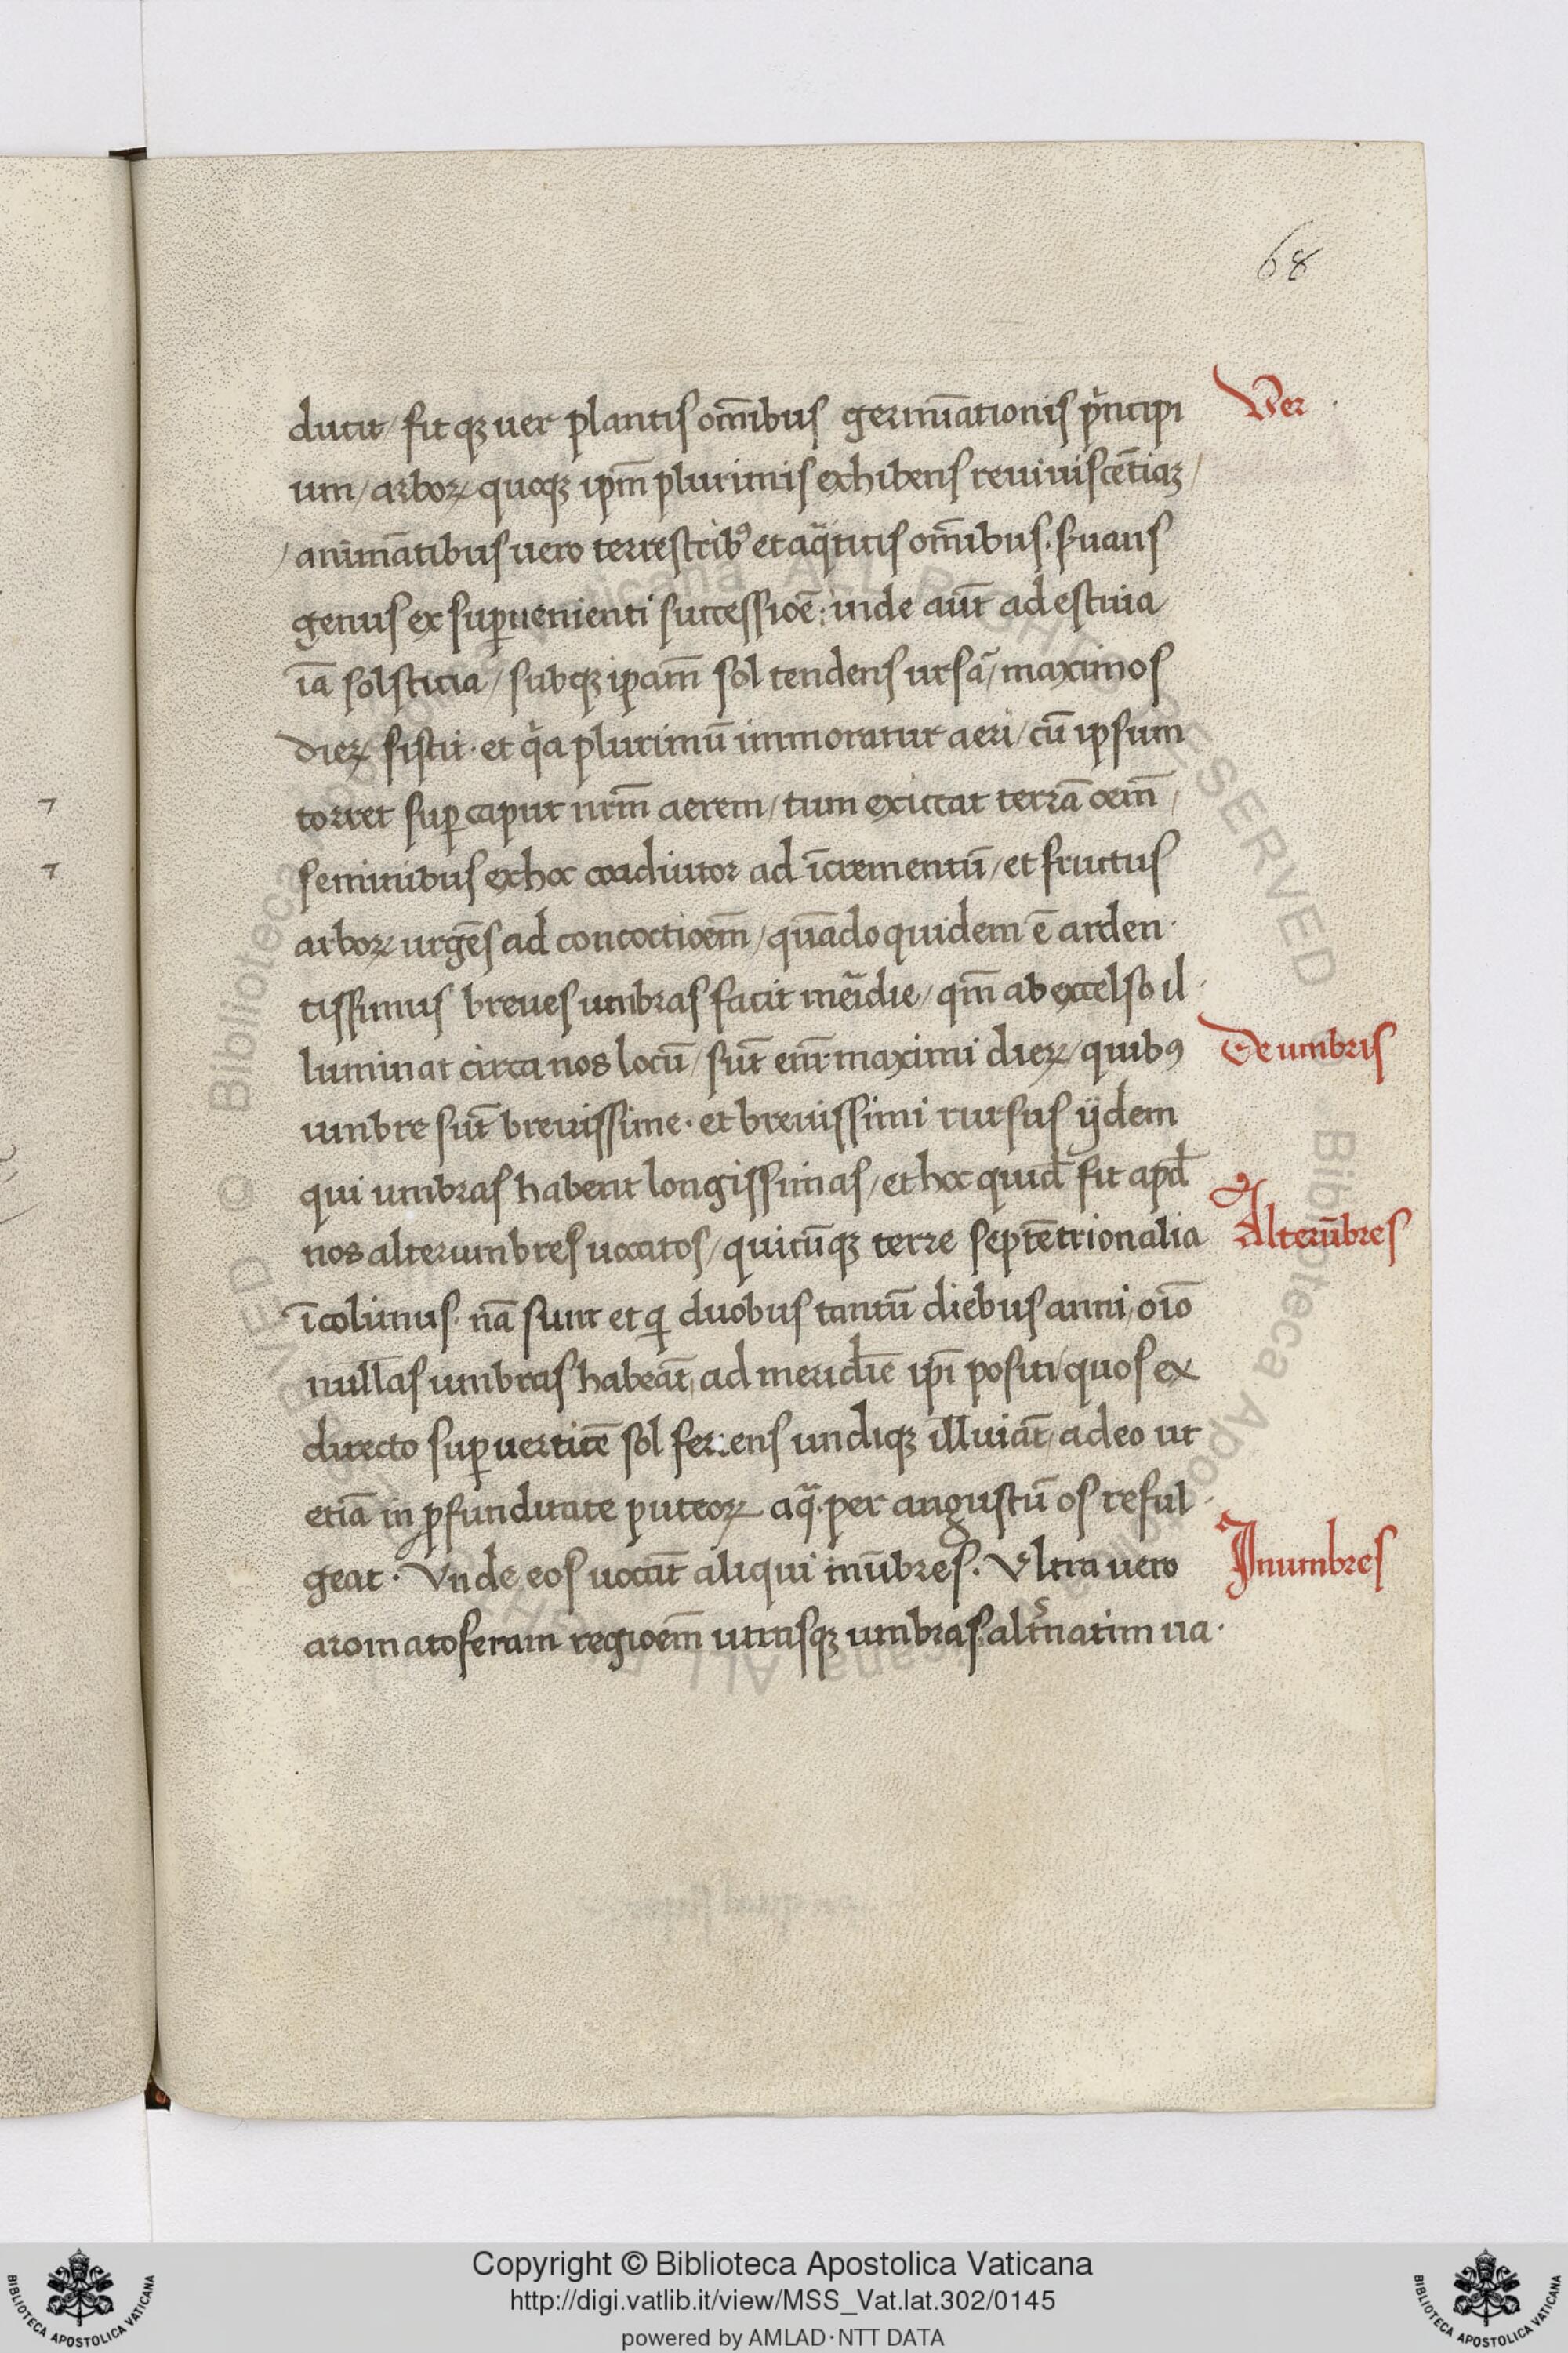 68
ducit / fit qꝫ uer plantis om̅ibus germīationis pͥncipi
Ver
um / arboꝝ quoqꝫ ip̅m plurimis exhibens reuiuiscētiaꝫ /
/ animātibus uero terrestribꝰ et aqͣticis om̅ibus. ſ̱uans
genus ex suꝑuenienti successioē: inde aut̅ ad estiua
iā solsticia / subqꝫ ip̅am sol tendens ursā / maximos
dieꝝ sistit · et qͥa plurimū immoratur aeri / cū ipsum
torret suꝑ caput nr̅m aerem / tum exiccat terrā oem̅ /
seminibus ex hoc coadiutor ad īcrementū / et fructus
arboꝝ urgēs ad concoctioem̅ / quādoquidem ē arden ·
tissimus breues umbras facit meͣidie / qm̅ ab excelso il ·
luminat circa nos locū / sūt eni̅ maximi dieꝝ / quibꝰ
De umbris
umbre sūt breuissime · et breuissimi rursus ijdem
qui umbras habent longissimas / et hoc quid̅ fit apd̅
nos alterumbres uocatos / quicūqꝫ terre septētrionalia
Alterūbres
īcolimus. nā sunt et qͥ duobus tantū diebus anni / oīo
nullas umbras habeāt / ad meridiē ip̅i positi / quos ex
directo suꝑ uerticē sol feriens undiqꝫ illuīat / adeo ut
etiā in ꝓfunditate puteoꝝ aqͣ per angustū os reful ·
geat · Vnde eos uocāt aliqui inūbres. Vltra uero
Inumbres
aromatoferam regioem̅ utrasqꝫ umbras alt̅natim ua ·
Copyright © Biblioteca Apostolica Vaticana
http://digi.vatlib.it/view/MSS_Vat.lat.302/0145
powered by AMLAD·NTT DATA